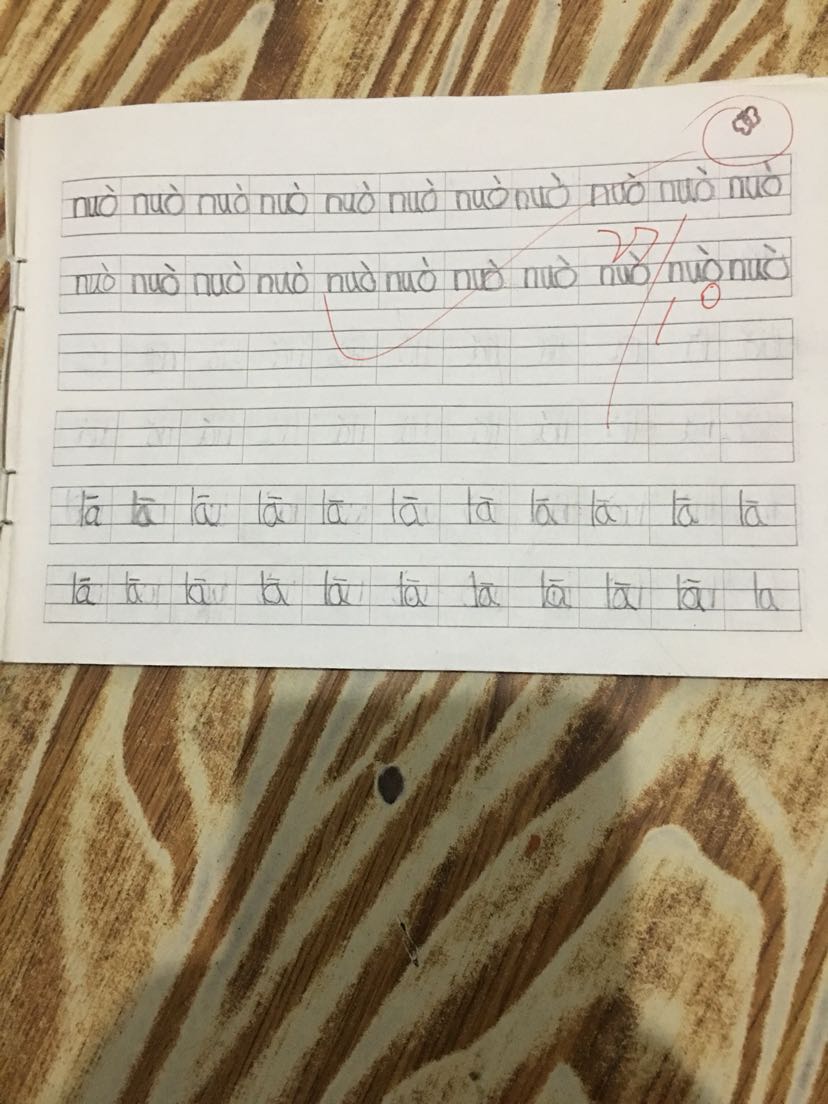 nuò nuò nuò nuò nuò nuò nuò nuò nuò nuò nuò
nuò nuò nuò nuò nuò nuò nuò nuò nuò nuò nuò
lā lā lā lā lā lā lā lā lā lā lā
lā lā lā lā lā lā lā lā lā lā la